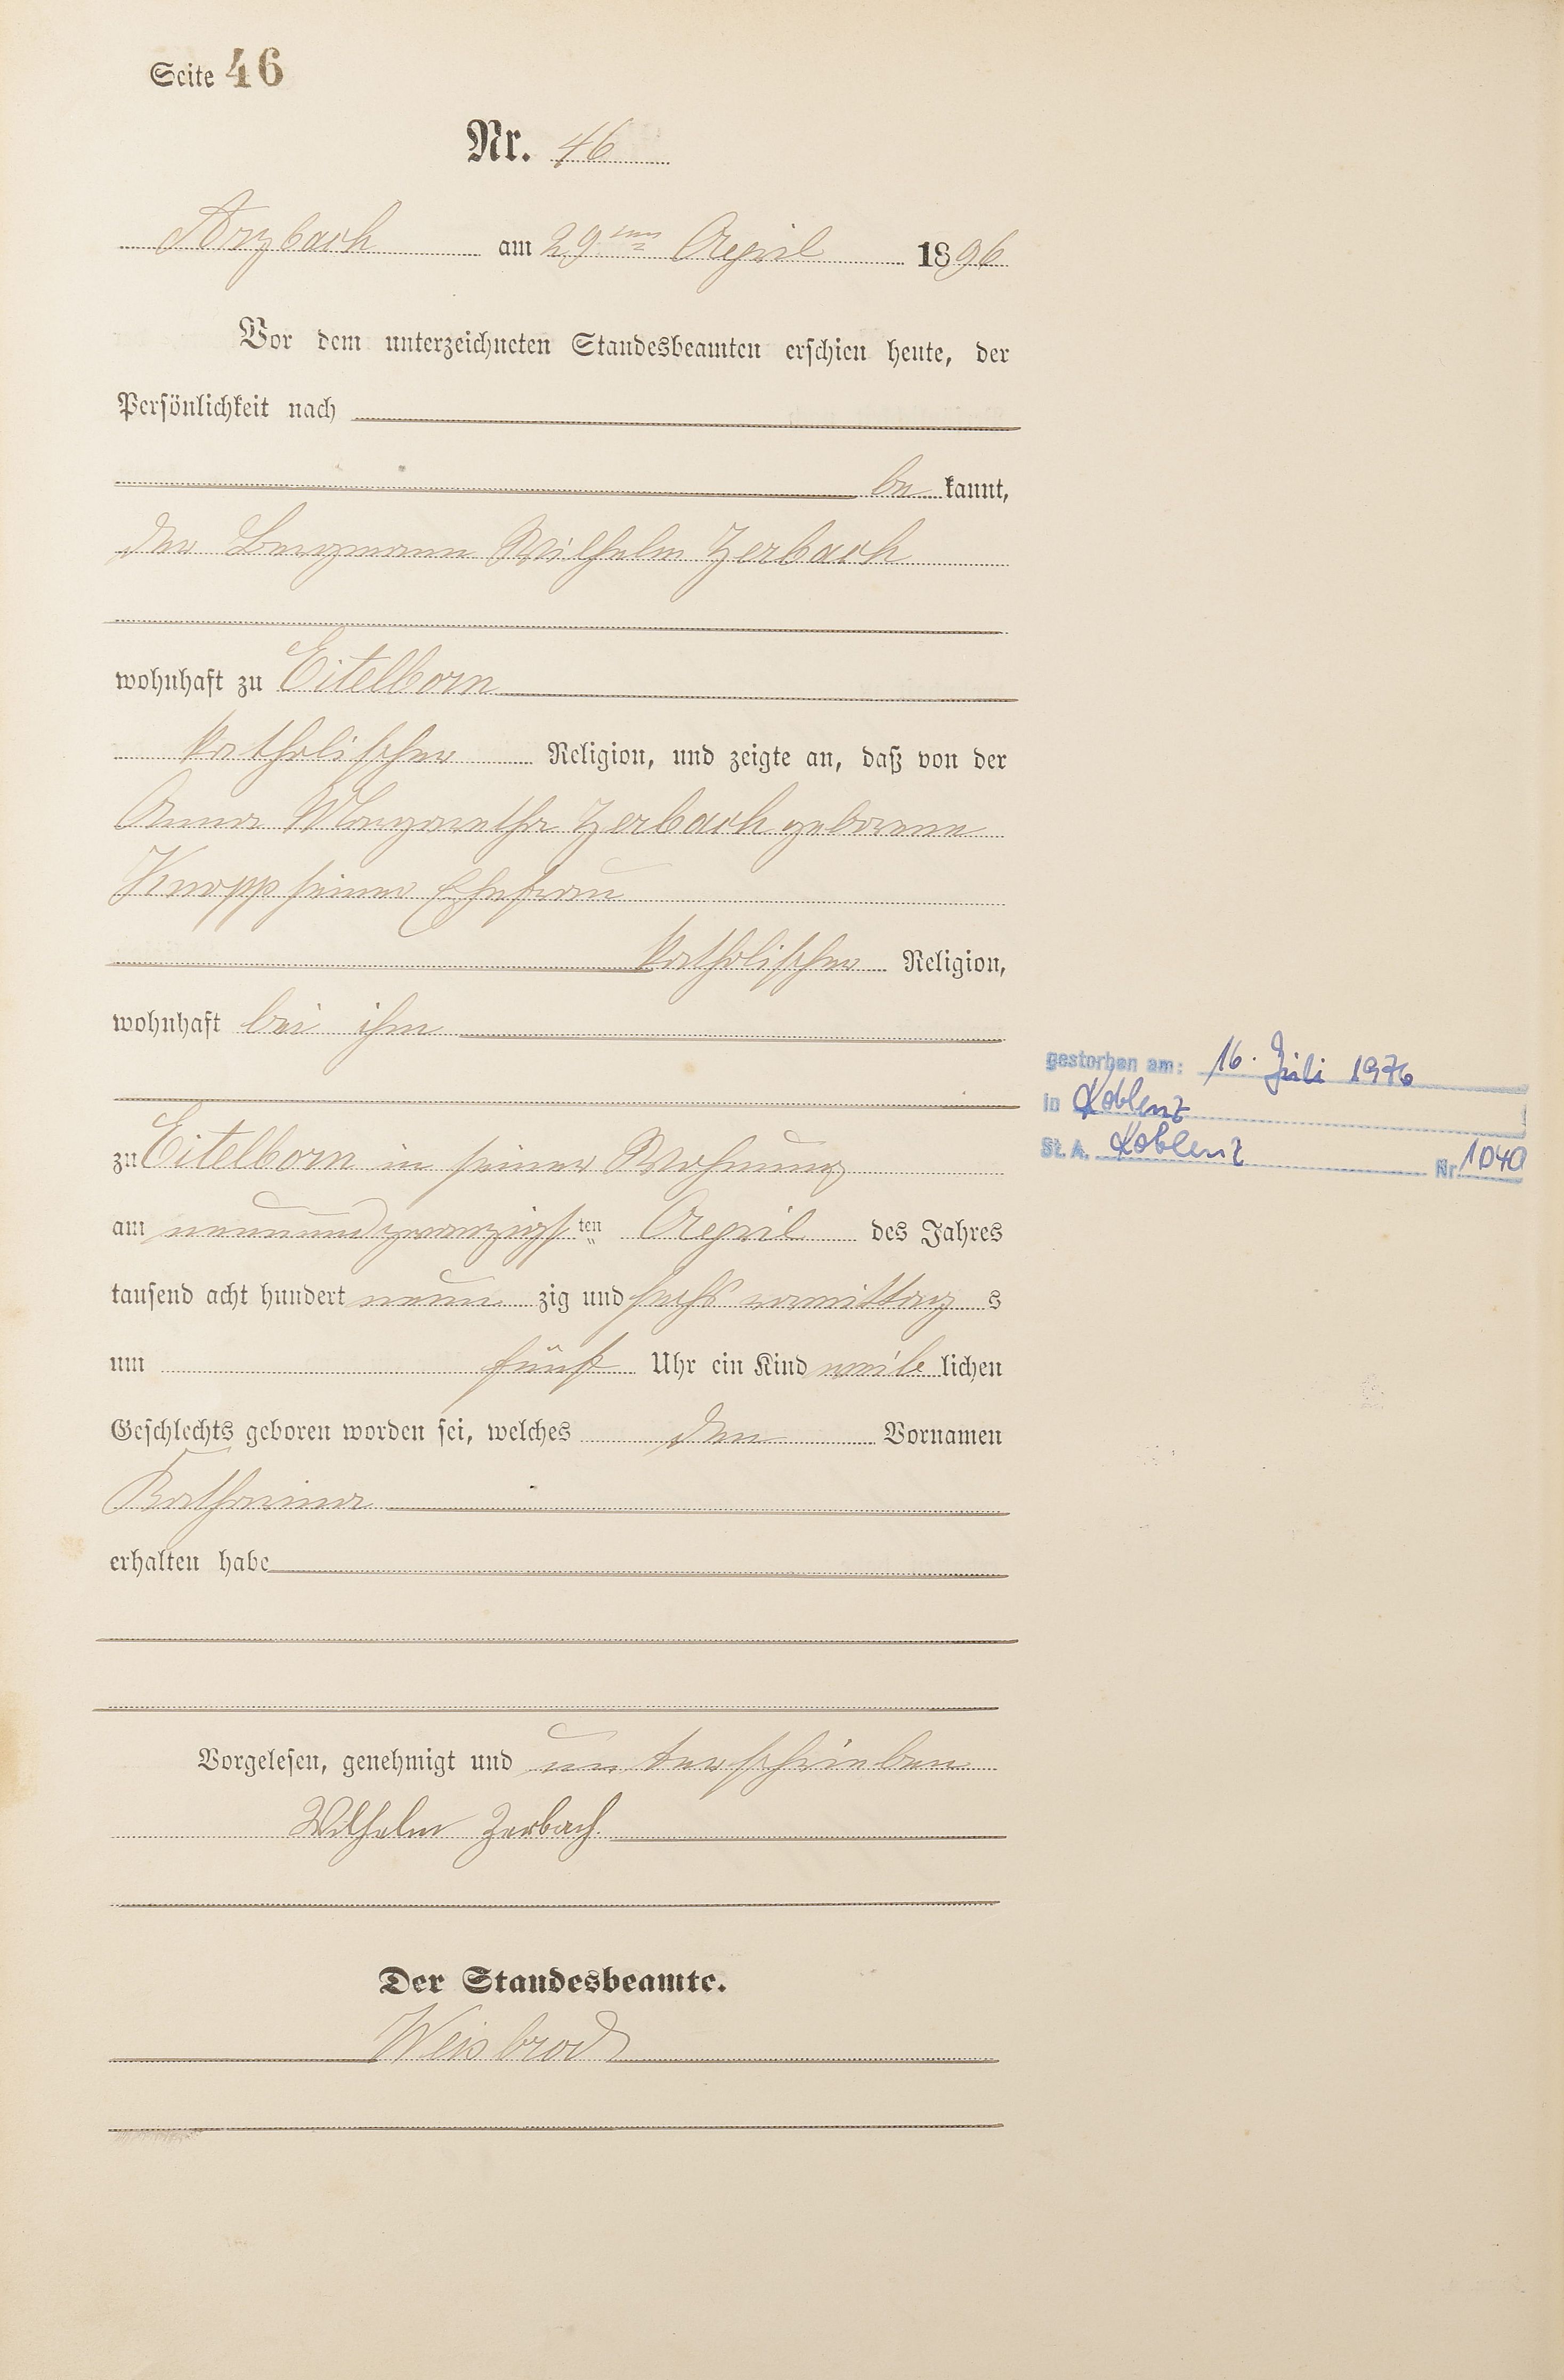 Seite 46
Nr. 46
Arzbach am 29ten April 1896
Vor dem unterzeichneten Standesbeamten erschien heute, der
Persönlichkeit nach
be kannt,
der Bergmann Wilhelm Zerbach
wohnhaft zu Eitelborn
katholischer Religion, und zeigte an, daß von der
Anna Margaretha Zerbach geborene
Knopp seiner Ehefrau
katholischer Religion,
wohnhaft bei ihm
gestorben am: 16. Juli 1976
in Koblenz
St. A. Koblenz Nr 1040
zu Eitelborn in seiner Wohnung
am neunundzwanzigsten April des Jahres
tausend acht hundert neun zig und sechs vormittag s
um fünf Uhr ein Kind weib lichen
Geschlechts geboren worden sei, welches den Vornamen
Katharina
erhalten habe
Vorgelesen, genehmigt und unterschrieben
Wilhelm Zerbach.
Der Standesbeamte.
Weisbrod